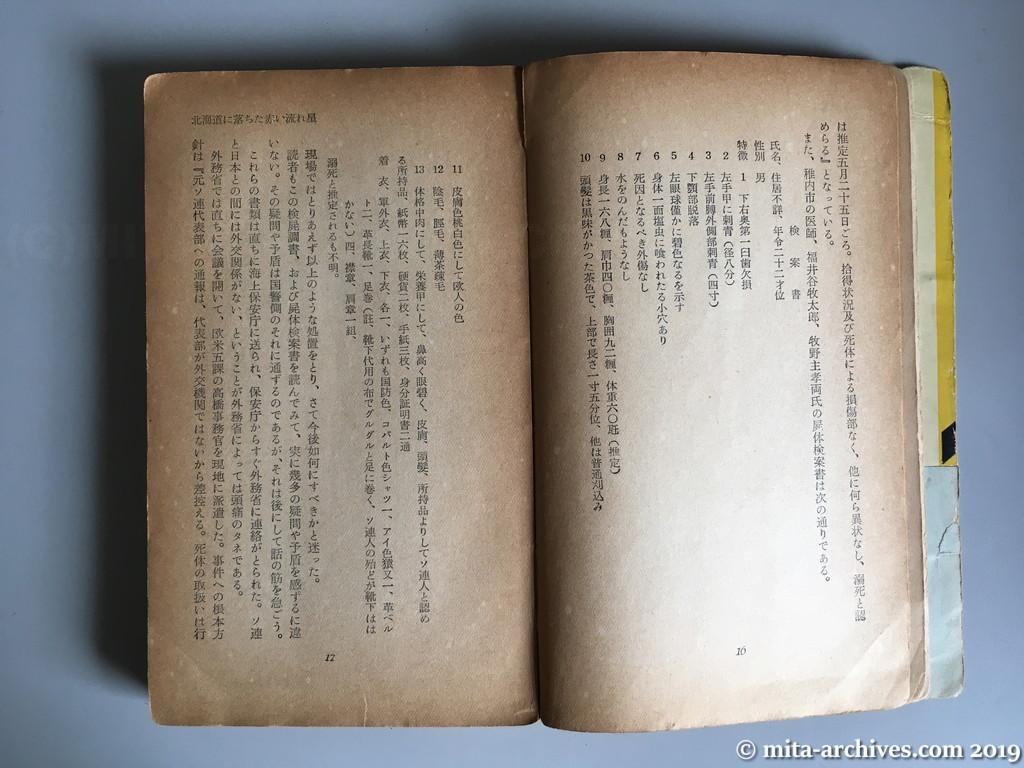 は推定五月二十五日ごろ。拾得状況及び死体による損傷部なく、他に何ら異状なし、溺死と認
めらる』となっている。
また、稚内市の医師、福井谷牧太郎、牧野主孝両氏の屍体検案書は次の通りである。
検案書
氏名、住居不詳、年令二十二才位
性別 男
特徴 1 下右奥第一臼歯欠損
2 左手甲に刺青(径八分)
3 左手前膊外側部刺青(四寸)
4 下顎部脱落
5 左眼球僅かに碧色なるを示す
6 身体一面塩虫に喰われたる小穴あり
7 死因となるべき外傷なし
8 水をのんだもようなし
9 身長一六八糎、肩巾四〇糎、胸囲九二糎、体重六〇瓩(推定)
10 頭髪は黒味がかつた茶色で、上部で長さ一寸五分位、他は普通刈込み
16
北海道に落ちた赤い流れ星
11 皮膚色桃白色にして欧人の色
12 陰毛、脛毛、薄茶疎毛
13 体格中肉にして、栄養甲にして、鼻高く眼碧く、皮膚、頭髪、所持品よりしてソ連人と認め
る所持品、紙幣一六枚、硬貨二枚、手紙三枚、身分証明書二通
着 衣、軍外衣、上衣、下衣、各一、いずれも国防色、コバルト色シャツ一、アイ色猿又一、革ベル
ト二、革長靴一、足巻(註、靴下代用の布でグルグルと足に巻く、ソ連人の殆どが靴下はは
かない)四、襟章、肩章一組、
溺死と推定されるも不明。
現場ではとりあえず以上のような処置をとり、さて今後如何にすべきかと迷った。
読者もこの検屍調書、および屍体検案書を読んでみて、実に幾多の疑問や矛盾を感ずるに違
いない。その疑問や矛盾は国警側のそれに通ずるのであるが、それは後にして話の筋を急ごう。
これらの書類は直ちに海上保安庁に送られ、保安庁からすぐ外務省に連絡がとられた。ソ連
と日本との間には外交関係がない、ということが外務省によっては頭痛のタネである。
外務省では直ちに会議を開いて、欧米五課の高橋事務官を現地に派遣した。事件への根本方
針は『元ソ連代表部への通報は、代表部が外交機関ではないから差控える。死体の取扱いは行
17
© mita-archives.com 2019